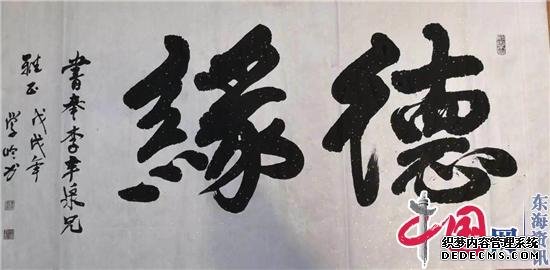 德緣
書奉李幸泉兄
雅正 戊戌年
學
中国网
东海资讯
织梦内容管理系统
DEDECMS.COM